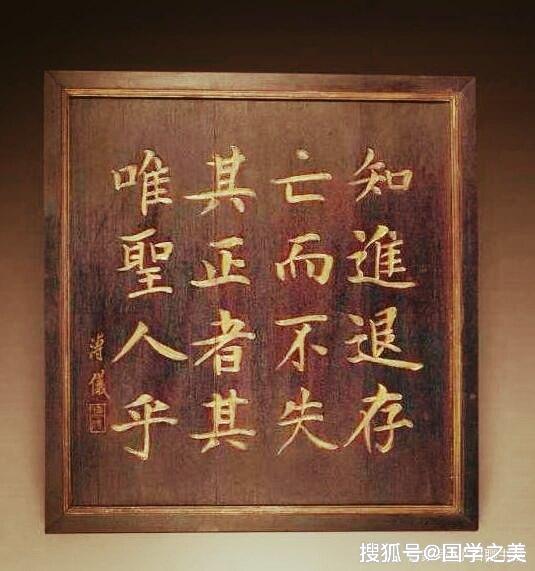 知進退存
亡而不失
其正者其
唯聖人乎
溥儀
搜狐号@国学之美